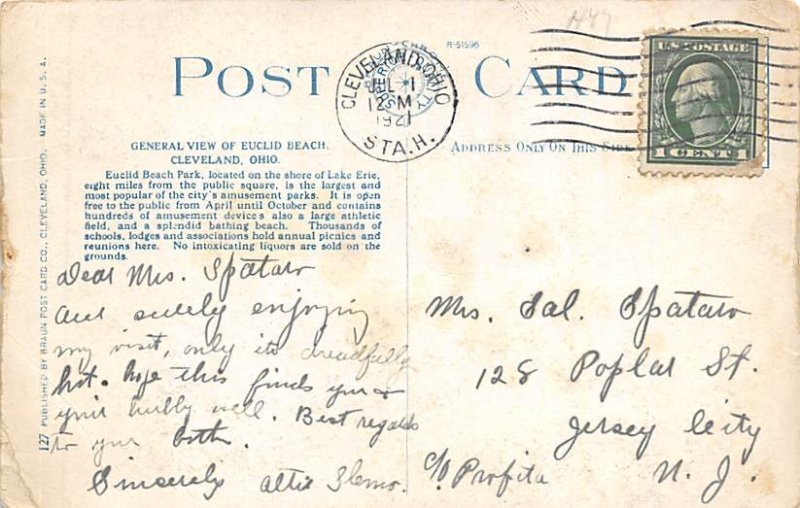 H47
R-51596
POST CARD
CLEVELAND, OHIO
JUL 1
12 M
1921
STA. H.
U.S. POSTAGE
1 CENT 1
GENERAL VIEW OF EUCLID BEACH.
CLEVELAND, OHIO.
Euclid Beach Park, located on the shore of Lake Erie,
eight miles from the public square, is the largest and
most popular of the city's amusement parks. It is open
free to the public from April until October and contains
hundreds of amusement devices also a large athletic
field, and a splendid bathing beach. Thousands of
schools, lodges and associations hold annual picnics and
reunions here. No intoxicating liquors are sold on the
grounds.
ADDRESS ONLY ON THIS SIDE
127 PUBLISHED BY BRAUN POST CARD CO., CLEVELAND, OHIO. MADE IN U. S. A.
Dear Mrs. Spataro
Am surely enjoying
my visit, only its dreadfully
hot. hope this finds you &
your hubby well. Best regards
to you both.
Sincerely
Mrs. Sal. Spataro
128 Poplar St.
Jersey City
c/o Profita N. J.